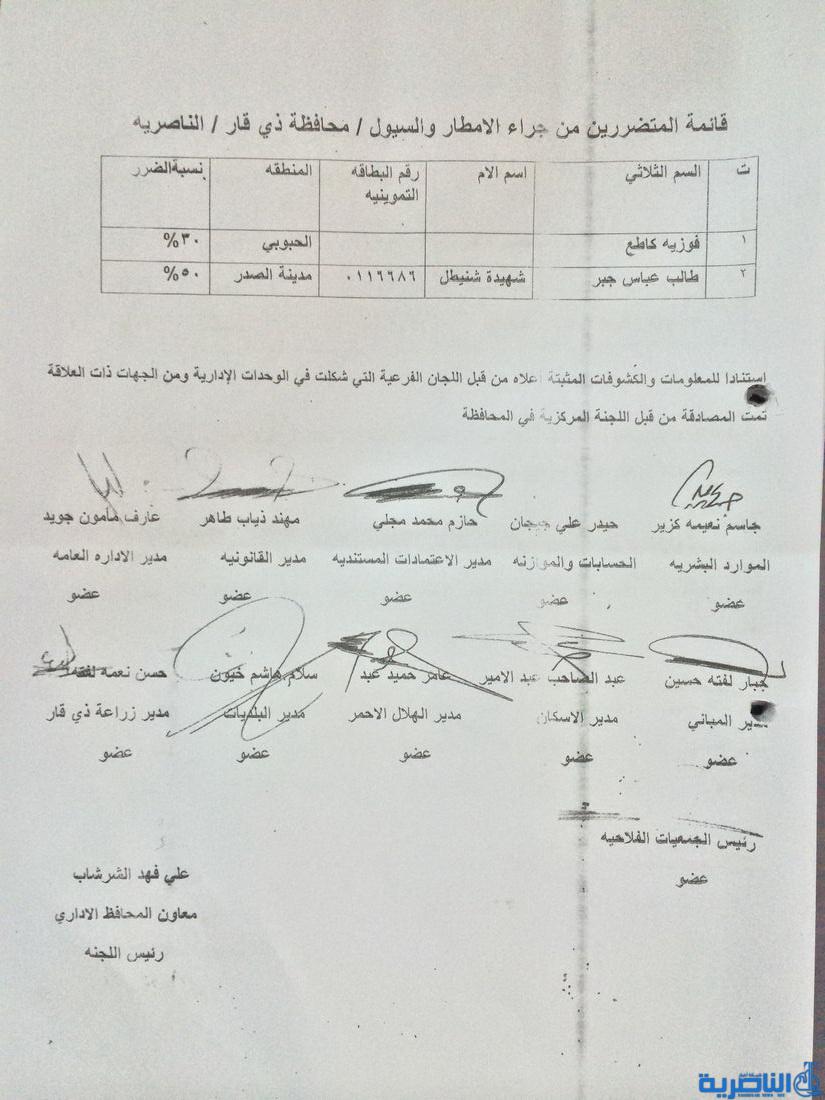 قائمة المتضررين من جراء الامطار والسيول / محافظة ذي قار / الناصريه
ت السم الثلاثي اسم الام رقم البطاقه التموينيه المنطقه نسبةالضرر
١ فوزيه كاطع الحبوبي ٣٠%
٢ طالب عباس جبر شهيدة شنيطل ٠١١٦٦٨٦ مدينة الصدر ٥٠%
إستنادا للمعلومات والكشوفات المثبتة اعلاه من قبل اللجان الفرعية التي شكلت في الوحدات الإدارية ومن الجهات ذات العلاقة
تمت المصادقة من قبل اللجنة المركزية في المحافظة
جاسم نعيمه كزير حيدر علي جيجان حازم محمد مجلي مهند ذياب طاهر عارف مامون جويد
الموارد البشريه الحسابات والموازنه مدير الاعتمادات المستنديه مدير القانونيه مدير الاداره العامه
عضو عضو عضو عضو عضو
جبار لفته حسين عبد الصاحب عبد الامير عامر حميد عبد سلام هاشم خيون حسن نعمه لفته
مدير المباني مدير الاسكان مدير الهلال الاحمر مدير البلديات مدير زراعة ذي قار
عضو عضو عضو عضو عضو
رئيس الجمعيات الفلاحيه
عضو
علي فهد الشرشاب
معاون المحافظ الاداري
رئيس اللجنه
الناصرية